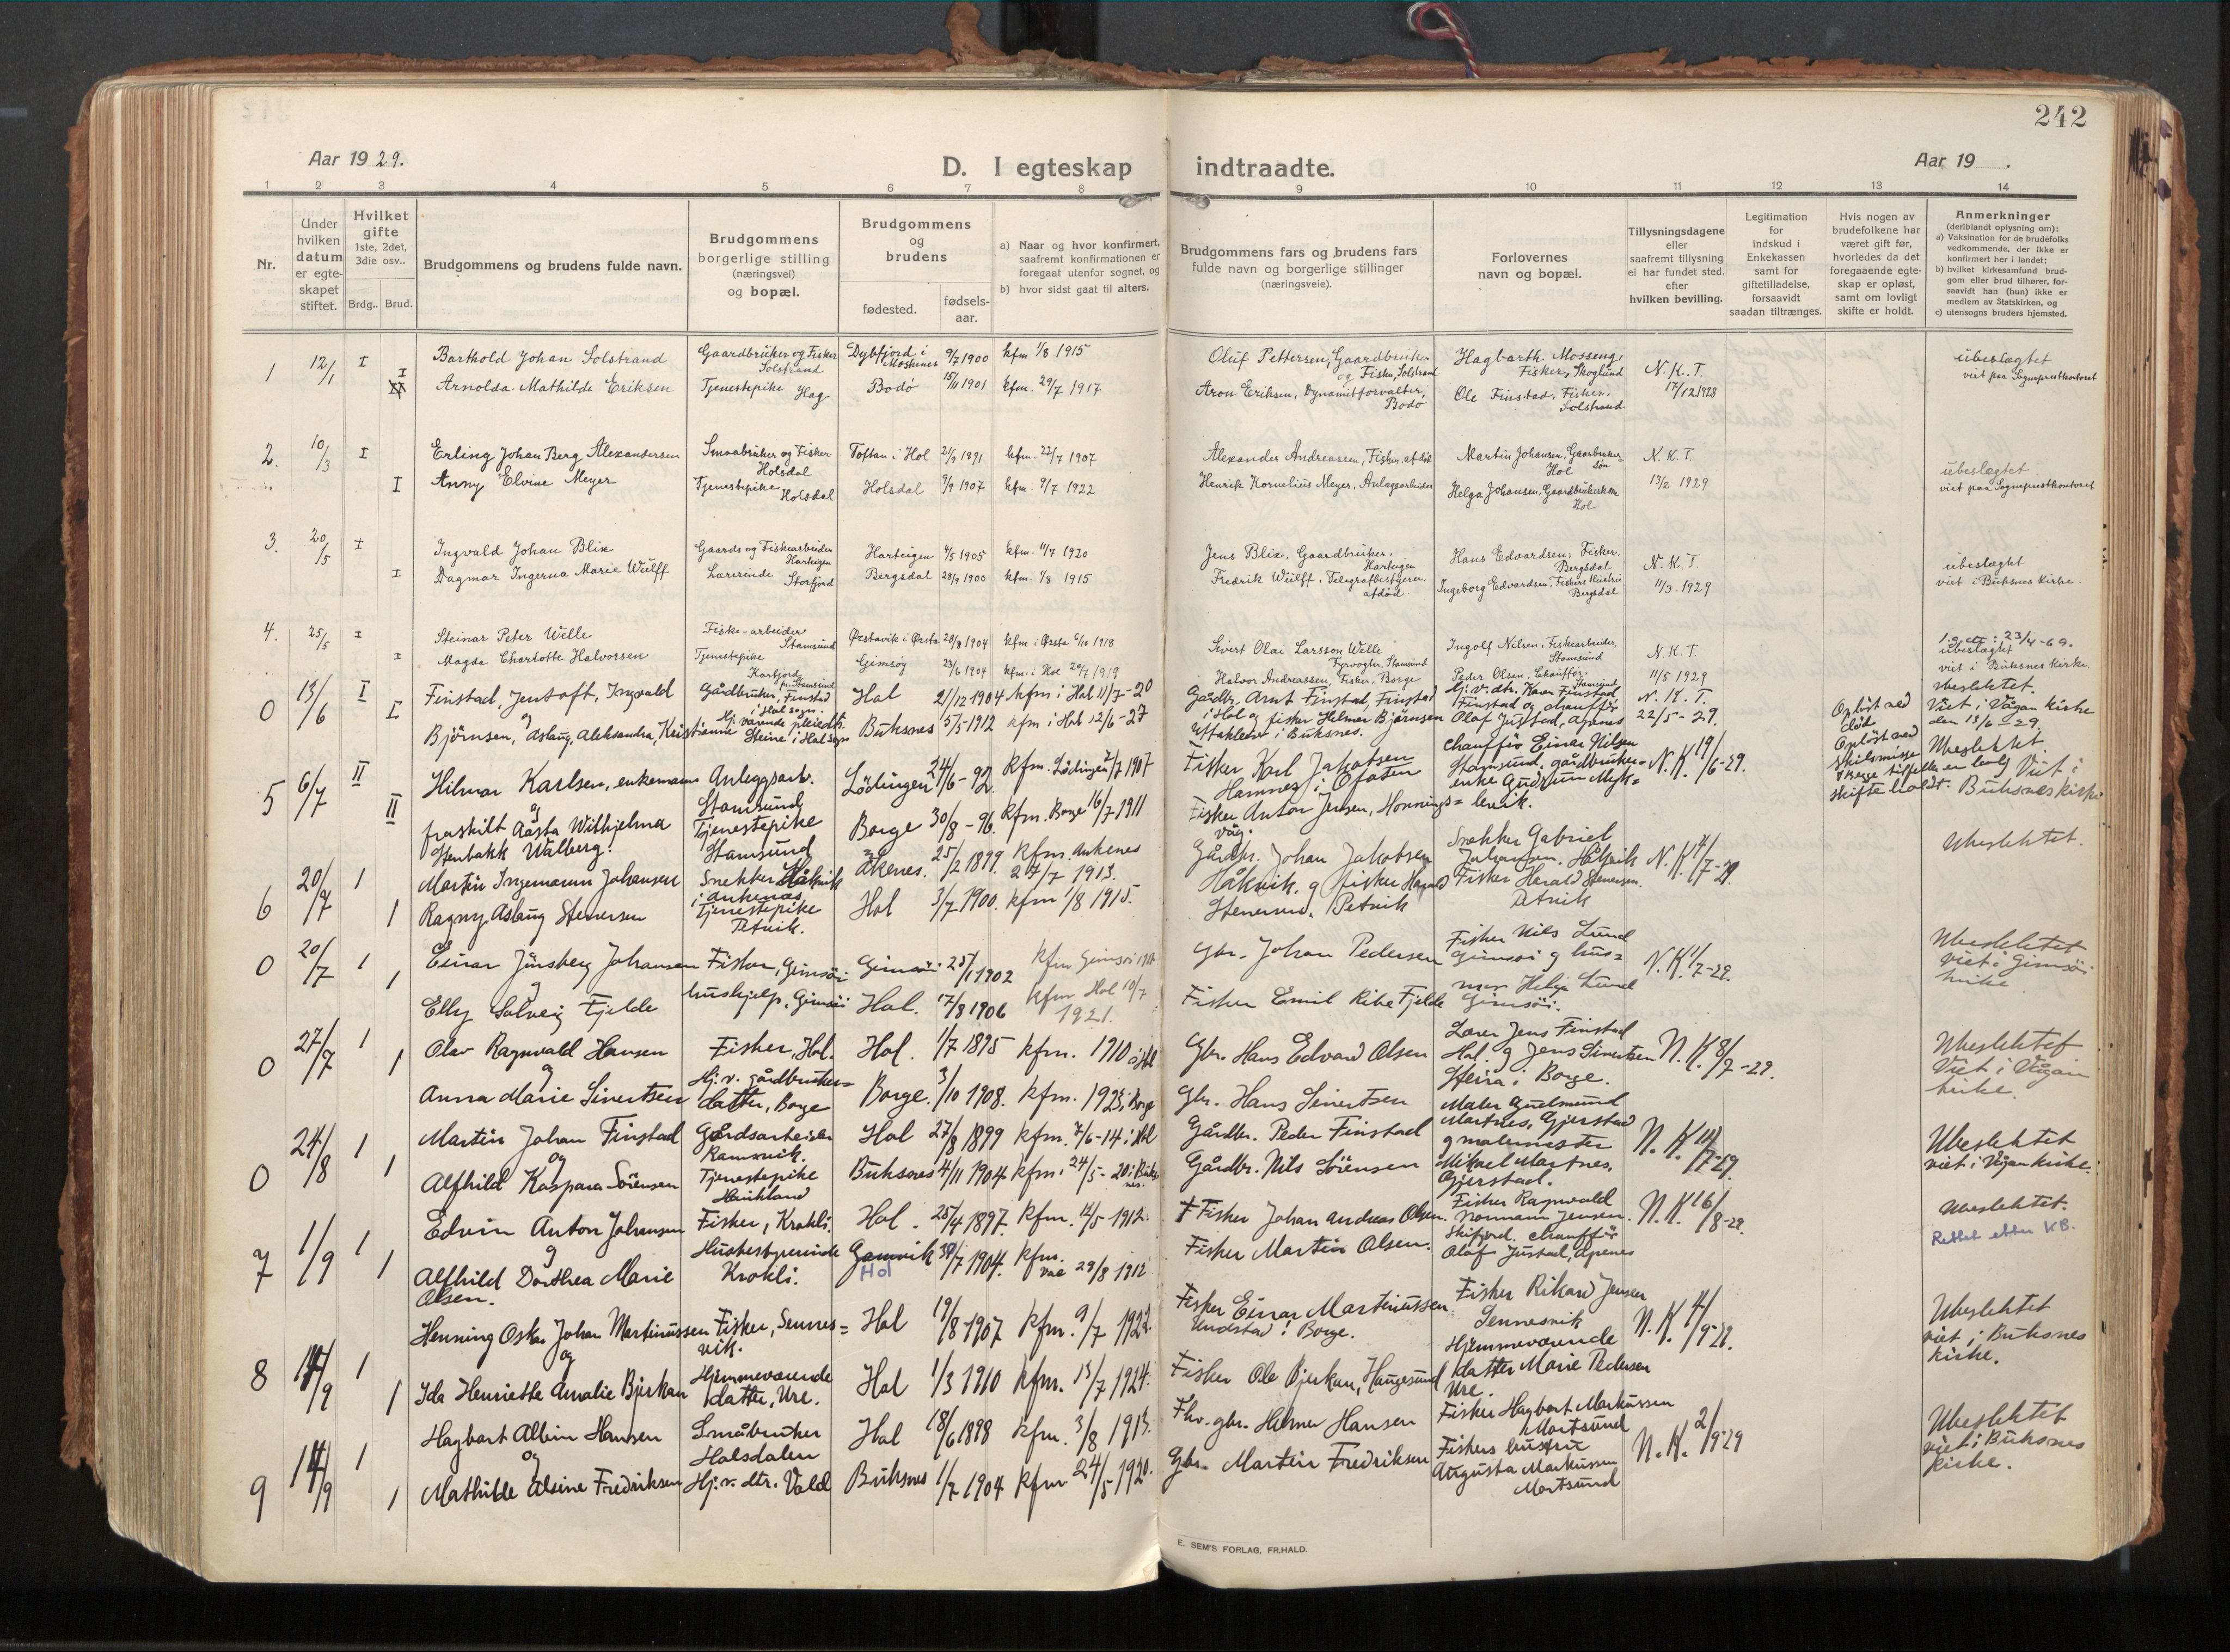 242
Aar 1929.
D. I egteskap indtraadte.
Aar 19 .
1 2 3 4 5 6 7 8 9 10 11 12 13 14
Nr.
Under hvilken datum er egteskapet stiftet.
Hvilket gifte 1ste, 2det, 3die osv..
Brdg.. Brud.
Brudgommens og brudens fulde navn.
Brudgommens borgerlige stilling (næringsvei) og bopæl.
Brudgommens og brudens
fødested.
fødsels-aar.
a) Naar og hvor konfirmert, saafremt konfirmationen er foregaat utenfor sognet, og
b) hvor sidst gaat til alters.
Brudgommens fars og brudens fars fulde navn og borgerlige stillinger (næringsveie).
Forlovernes navn og bopæl.
Tillysningsdagene eller saafremt tillysning ei har fundet sted, efter hvilken bevilling.
Legitimation for indskud i Enkekassen samt for giftetilladelse, forsaavidt saadan tiltrænges.
Hvis nogen av brudefolkene har været gift før, hvorledes da det foregaaende egteskap er opløst, samt om lovligt skifte er holdt.
Anmerkninger (deriblandt oplysning om):
a) Vaksination for de brudefolks vedkommende, der ikke er konfirmert her i landet;
b) hvilket kirkesamfund brudgom eller brud tilhører, forsaavidt han (hun) ikke er medlem av Statskirken, og
c) utensogns bruders hjemsted.
1 12/1 I Barthold Johan Solstrand Gaardbruker og Fisker Solstrand Dybfjord i Moskenes 9/7 1900 kfm 1/8 1915 Oluf Pettersen, Gaardbruker og Fisker, Solstrand Hagbarth Mosseng, Fisker, Skoglund N. K. T. ubeslægtet
I Arnolda Mathilde Eriksen Tjenestepike Hag Bodø 15/11 1901 kfm. 29/7 1917 Aron Eriksen, Dynamitforvalter, Bodø Ole Finstad, Fisker, Solstrand 17/12 1928 viet paa Sogneprestkontoret
2. 10/3 I Erling Johan Berg Alexandersen Smaabruker og Fisker Holsdal Toftan i Hol 21/9 1891 kfm. 22/7 1907 Alexander Andreassen, Fisker, af Hol Martin Johansen, Gaarbrukersøn Hol N. K. T. ubeslægtet
I Anny Elvine Meyer Tjenestepike Holsdal Holsdal 9/9 1907 kfm. 9/7 1922 Henrik Kornelius Meyer, Anlægsarbeider Helga Johansen, Gaardbrukerkone Hol 13/2 1929 viet paa Sogneprestkontoret
3. 20/5 I Ingvald Johan Blix Gaards og Fiskearbeider Harteigen Harteigen 4/5 1905 kfm. 11/7 1920 Jens Blix, Gaardbruker, Harteigen Hans Edvardsen, Fisker, Bergsdal N. K. T. ubeslægtet
I Dagmar Ingerna Marie Wulff Lærerinde Storfjord Bergsdal 28/9 1900 kfm. 1/8 1915 Fredrik Wulff, Telegrafbestyrer, afdød Ingeborg Edvardsen, Fiskers Hustru Bergsdal 11/3 1929 viet i Buksnes kirke.
4. 25/5 I Steinar Peter Welle Fiske-arbeider Stamsund Ørstavik i Ørsta 28/8 1904 kfm i Ørsta 6/10 1918 Sivert Olai Larsson Welle Fyrvogter, Stamsund Ingolf Nilsen, Fiskearbeider, Stamsund N. K. T. 23/4-69. ubeslægtet
I Magda Charlotte Halvorsen Tjenestepike Kartfjord pr. Stamsund Gimsøy 23/6 1904 kfm. i Hol 20/7 1919 Halvor Andreassen, Fisker, Borge Peder Olsen, Chauffør, Stamsund 11/5 1929 viet i Buksnes kirke
0 13/6 I Finstad, Jentoft, Ingvald Gårdbruker, Finstad i Hol sogn. Hol 21/12 1904 kfm i Hol 11/7-20 Gårdbr. Arnt Finstad, Finstad i Hol og fisker Helmer Bjørnsen Uttakleiv i Buksnes. Hj. v. dtr. Karen Finstad, Finstad og chauffør Olaf Justad, Apenes N. K. T. 22/5-29. Ubeslektet. Viet i Vågan kirke den 13/6-29.
og
I Bjørnsen, Aslaug, Aleksandra, Kristianne Hj. værende pleiedtr. Steine i Hol sogn Buksnes 5/5 1912 kfm i Hol 12/6-27
5 6/7 II Hilmar Karlsen, enkemann Anleggsarb. Stamsund Lødingen 24/6-92. kfm. Lødingen 7/7 1907 Fisker Karl Jakobsen Hamnes i Ofoten Chauffør Einar Nilsen Stamsund, gårdbrukerenke Gudrun N. K. 19/6-29. Opløst ved død Opløst ved skilsmisse I begge tilfelle er lovlig skifte holdt. Ubeslektet. Viet i Buksnes kirke
og
II fraskilt Aasta Wilhjelma Stenbakk Walberg. Tjenestepike Stamsund Borge 30/8-96. kfm. Borge 16/7 1911 Fisker Anton Jensen, Honningsvåg.
6 20/7 1 Martin Ingemann Johansen Snekker Håkvik i Ankenes Ankenes. 25/2 1899 kfm. Ankenes 27/7 1913. Gårdbr. Johan Jakobsen Håkvik. og fisker Harald Stenersen, Petvik Snekker Gabriel Johansen. Håkvik Fisker Harald Stenersen. Petvik N. K. 4/7-29. Ubeslektet.
1 Ragny Aslaug Stenersen Tjenestepike Petvik. Hol 3/7 1900. kfm 1/8 1915.
0 20/7 1 Einar Jünsberg Johansen Fisker, Gimsøi Gimsøi 25/1 1902 kfm Gimsøi Gbr. Johan Pedersen Fisker Nils Lund Gimsøi og husmor Helga Lund Gimsøi. N. K. 1/7-29. Ubeslektet viet i Gimsøi kirke
og
1 Elly Solveig Fjelde hushjelp, Gimsøi Hol. 17/8 1906 kfm Hol 10/7 1921. Fisker Emil Ribe Fjelde
0 27/7 1 Olav Ragnvald Hansen Fisker, Hol. Hol. 1/7 1895 kfm. 1910 i Hol Gbr. Hans Edvard Olsen Lærer Jens Finstad Hol. og Jens Sivertsen Steira i Borge. N. K. 8/7-29. Ubeslektet Viet i Vågan kirke.
og
1 Anna Marie Sivertsen Hj. v. gårdbrukerdatter, Borge Borge. 3/10 1908. kfm. 1923 i Borge Gbr. Hans Sivertsen
0 24/8 1 Martin Johan Finstad Gårdsarbeider Ramsvik. Hol 27/8 1899 kfm. 7/6-14 i Hol Gårdbr. Peder Finstad Maler Gudmund Martnes, Gjerstad og malermester Mikael Martnes, Gjerstad. N. K. Ubeslektet viet i Vågan kirke.
og
1 Alfhild Kaspara Sørensen Tjenestepike Buksnes 4/11 1904 kfm. 24/5-20 i Buksnes. Gårdbr. Nils Sørensen
7 1/9 1 Edvin Anton Johansen Fisker, Krokli. Hol. 25/4 1897. kfm. 12/5 1912. † Fisker Johan Andreas Olsen. Fisker Ragnvald Normann Jensen. Skifjord. Chauffør Olaf Justad, Apenes N. K. 16/8-29. Ubeslektet.
og
1 Alfhild Dorthea Marie Olsen. Husbestyrerinde Krokli. Gamvik Hol 30/7 1904. kfm. 29/8 1912 Fisker Martin Olsen. Rettet etter KB.
8 14/9 1 Henning Oskar Johan Martinussen Fisker, Sennesvik. Hol 19/8 1907 kfm. 9/7 1922. Fisker Einar Martinussen Undstad i Borge. Fisker Rikard Jensen Sennesvik Hjemmeværende datter Marie Pedersen Ure. N. K. 4/9-29. Ubeslektet viet i Buksnes kirke.
og
1 Ida Henriette Amalie Bjerkan Hjemmeværende datter, Ure. Hol 1/3 1910 kfm. 13/7 1924. Fisker Ole Bjerkan, Haugesund
9 14/9 1 Hagbart Albin Hansen Småbruker Holsdalen Hol 18/6 1898 kfm. 3/8 1913. Fhv. gbr. Helmer Hansen Fisker Hagbart Markussen Mortsund Fiskers hustru Augusta Markussen Mortsund N. K. 2/9-29 Ubeslektet viet i Buksnes kirke.
og
1 Mathilde Alsine Fredriksen Hj. v. dtr. Vold Buksnes 1/7 1904 kfm 24/5-1920. Gbr. Martin Fredriksen
E. SEM'S FORLAG, FR.HALD.